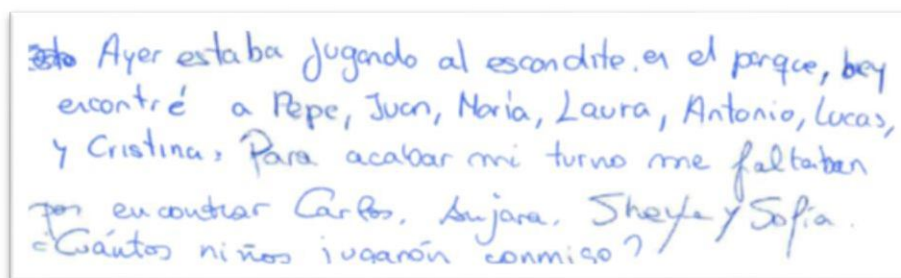 Ayer estaba jugando al escondite. en el parque, y
encontré a Pepe, Juan, María, Laura, Antonio, Lucas,
y Cristina, Para acabar mi turno me faltaban
por encontrar Carlos, Sujara, Sheyla y Sofía.
¿Cuántos niños jugarón conmigo?